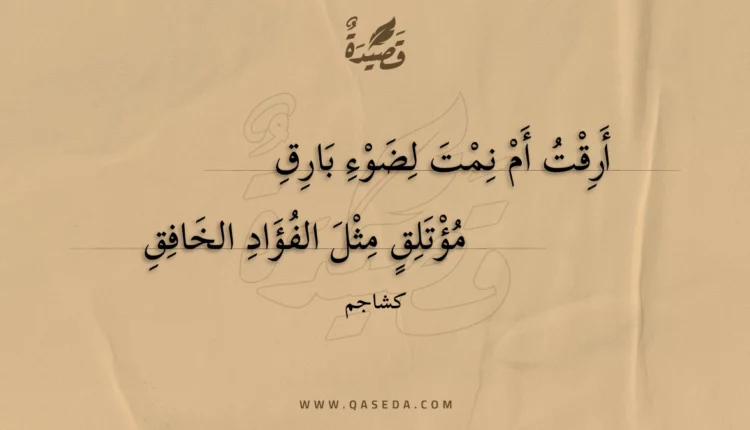 قَصِيدَةٌ
أَرِقْتُ أَمْ نِمْتَ لِضَوْءِ بَارِقِ
مُؤْتَلِقٍ مِثْلَ الفُؤَادِ الخَافِقِ
كشاجم
WWW.QASEDA.COM